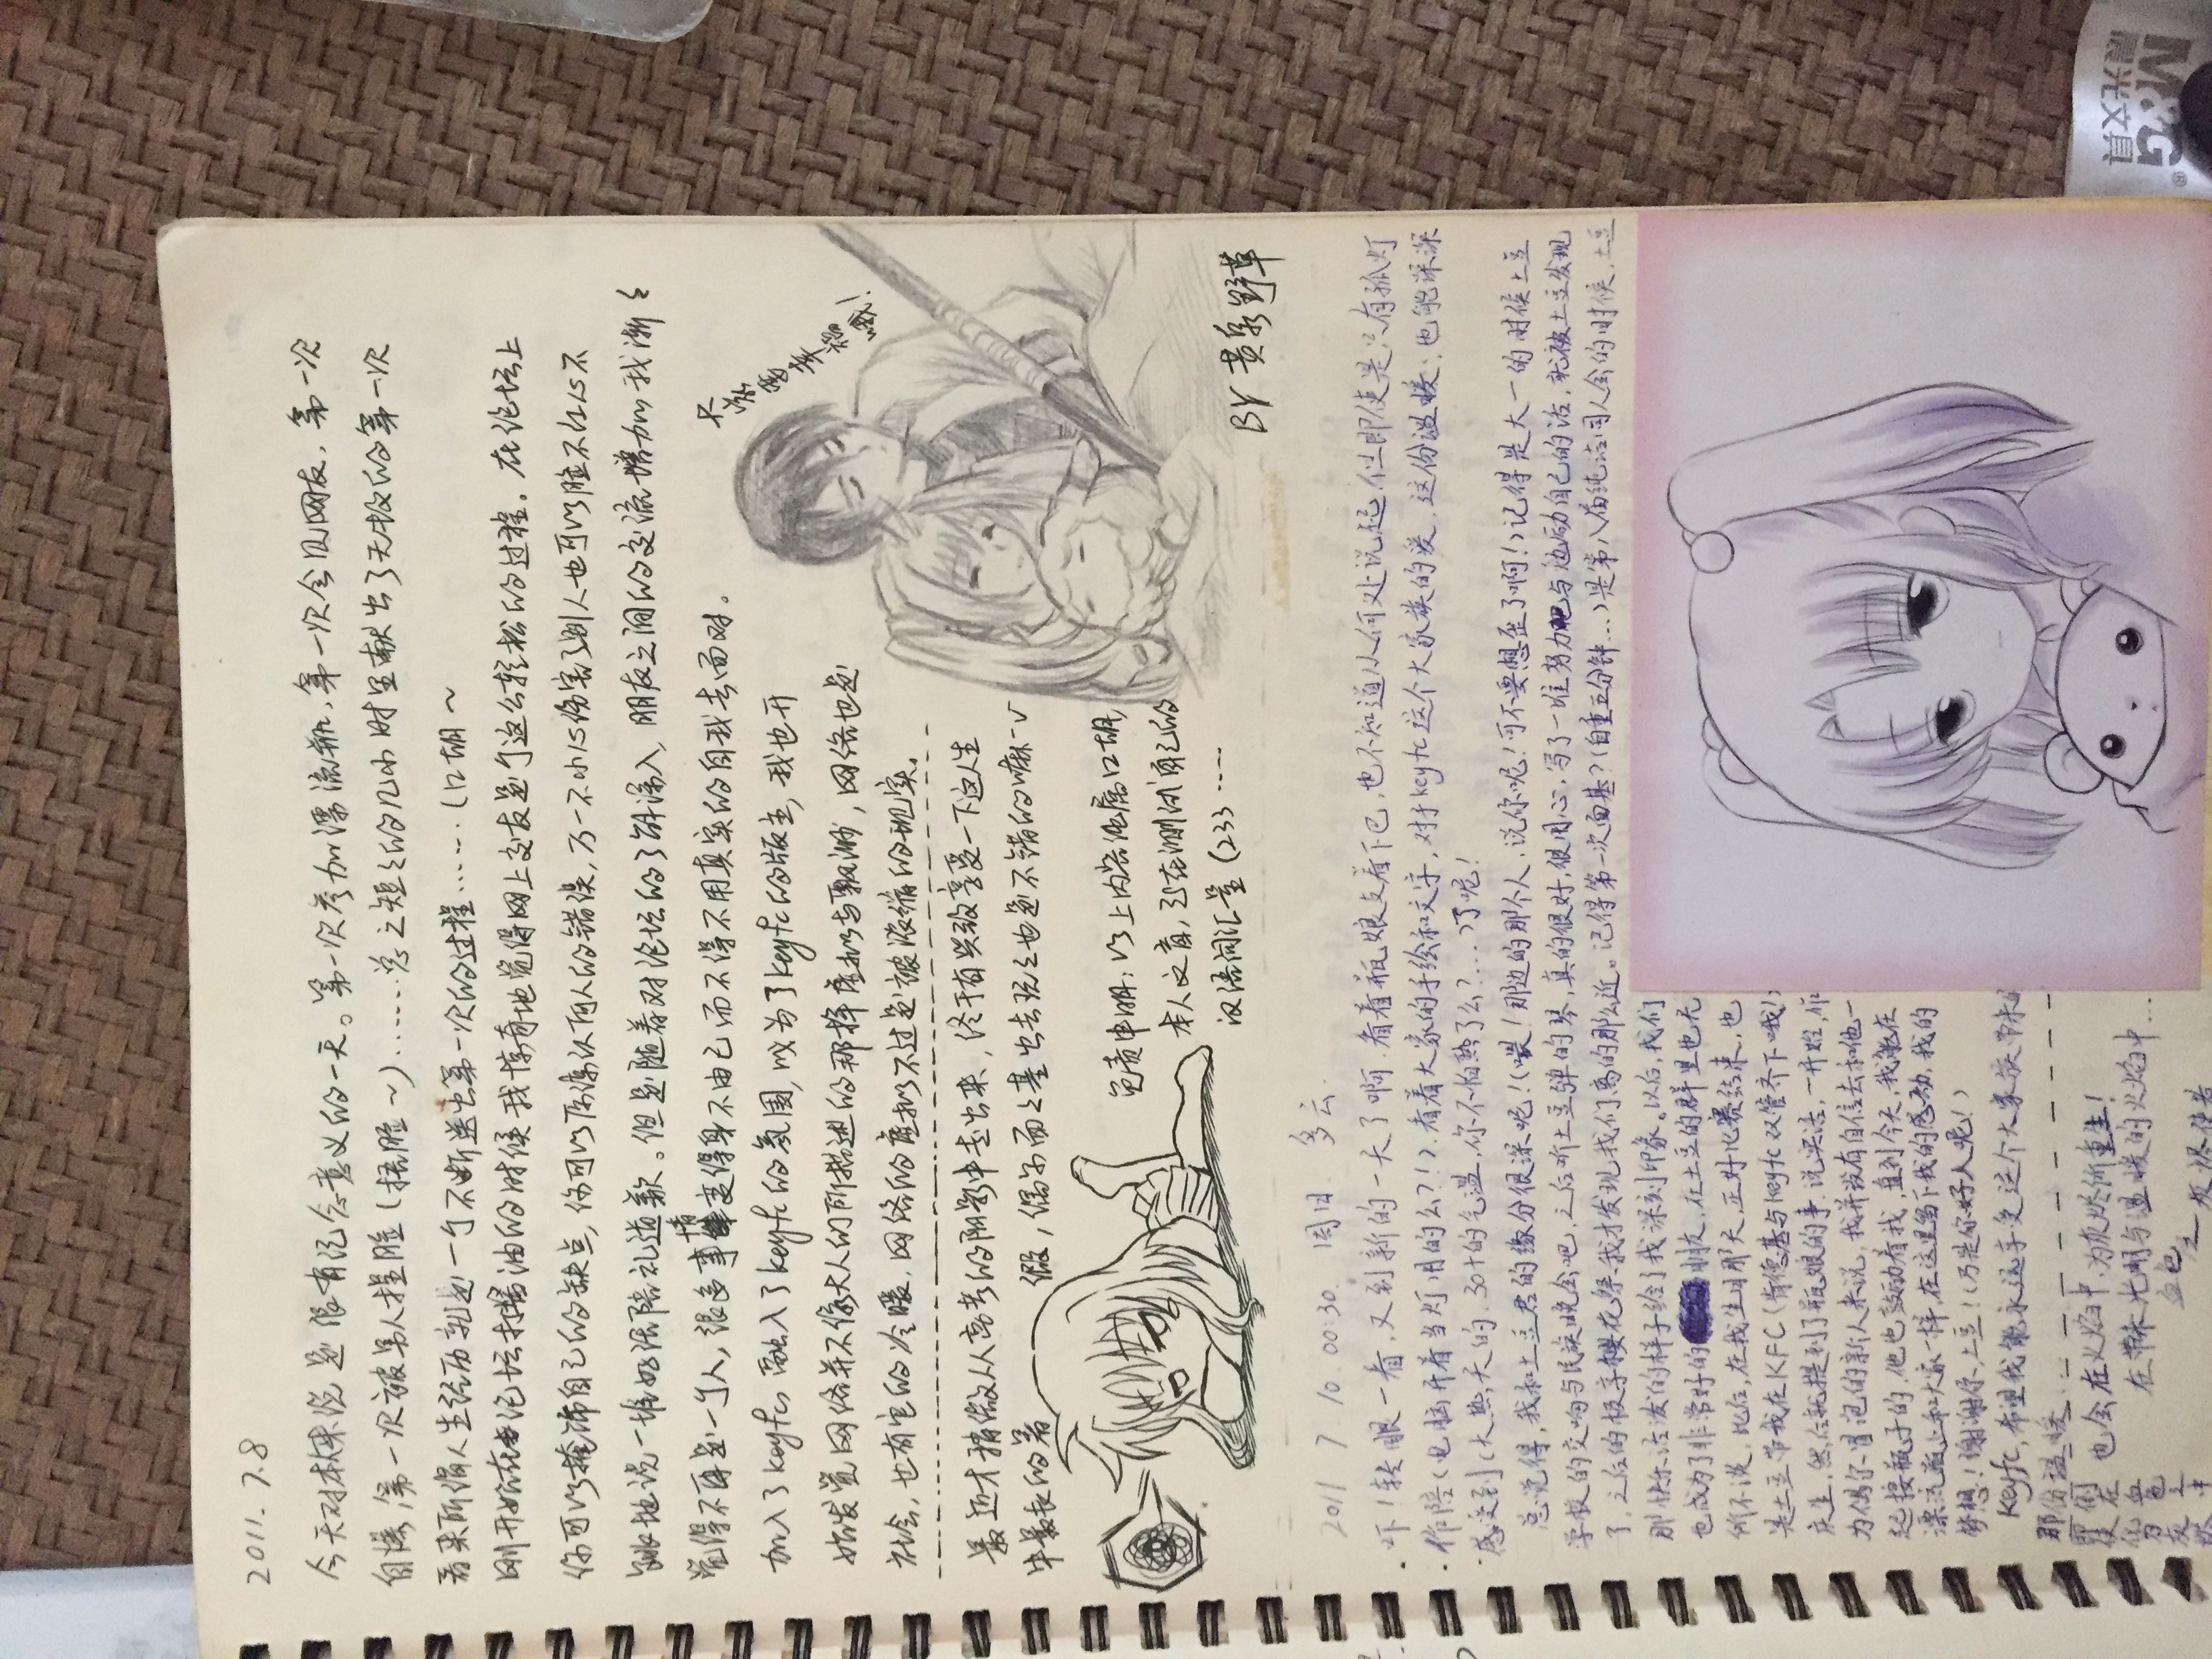 2011.7.8
今天对本来说是很有纪念意义的一天。第一次参加漂流瓶，第一次会见网友，第一次
自爆，第一次被男人捏脸（捂脸～）……总之短短的几小时里献出了无数的第一次
看来所谓人生经历就是一个不断送出第一次的过程……（口胡～
刚开始在论坛打酱油的时候我惊奇地觉得网上交友是个这么轻松的过程，在论坛上
你可以掩饰自己的缺点，你可以原谅以前人的错误，万一不小心伤害了别人也可以脸不红心不
跳地说一堆好话陪礼道歉。但是随着对论坛的了解深入，朋友之间的交流增加，我渐渐
觉得不再是一个人，很多事情变得身不由己而不得不用真实的自我去面对。
加入了keyfc，融入了keyfc的氛围，成为了keyfc的版主，我也开
始发觉网络并不像大人们所描述的那样虚拟与飘渺，网络也是
社会，也有它的冷暖，网络的虚拟不过是被浓缩的现实。
最近才稍微从高考的阴影中走出来，终于有兴致享受一下这人生
中最长的暑假，偶尔面面基出去玩玩也是不错的嘛~√
免责申明：以上内容纯属口胡，
本人文盲，现在测试自己的
汉语词汇量（233……
BY 黄泉野草
2011 7 10. 00:30. 周日. 多云.
·吓！转眼一看，又到新的一天了啊，看着瓶娘支着下巴，也不知道从何处说起，但即使是只有孤灯
·作陪（电脑开着当灯用的么？！），看着大家的手绘和文字，对于keyfc这个大家族的爱，这份温暖，也能深深
·感受到（大热天的，30+的气温，你不怕熟了么？…）了呢！
总觉得，我和土豆君的缘分很深呢！（喂！那边的那个人，说你呢！可不要想歪了啊！）记得是大一的时候土豆
学校的交响与民族晚会吧，之后听土豆弹的琴，真的很好，很用心，写了一堆努力吧与边励自己的话，就被土豆发现
了，之后的极亭樱花祭，我才发现我们离的那么近。记得第一次面基？（自重五分钟…）是第八届纯洁同人会的时候，土豆
那快乐活泼的样子给了我深刻印象，以后，我们
也成为了非常好的朋友，在土豆的群里也无
所不谈，比后，在我生日那天，正好比赛结束，也
是土豆带我在KFC（肯德基与keyfc双管齐下哦！）
庆生，然后就提到了瓶娘的事，说实话，一开始，作
为偶尔冒泡的新人来说，我并没有自信去和他一
起接瓶子的，他也鼓动着我，直到今天，我能在
漂流瓶上和大家一样，在这里写下我的感动，我的
梦想！谢谢你，土豆！（乃是你好人呢！）
keyfc，希望我能永远享受这个大家族带来的
那份温暖。
即使在火焰中，为灰烬所重生！
在带来光明与温暖的火焰中…
血色之灰烬使者
M&G
晨光文具